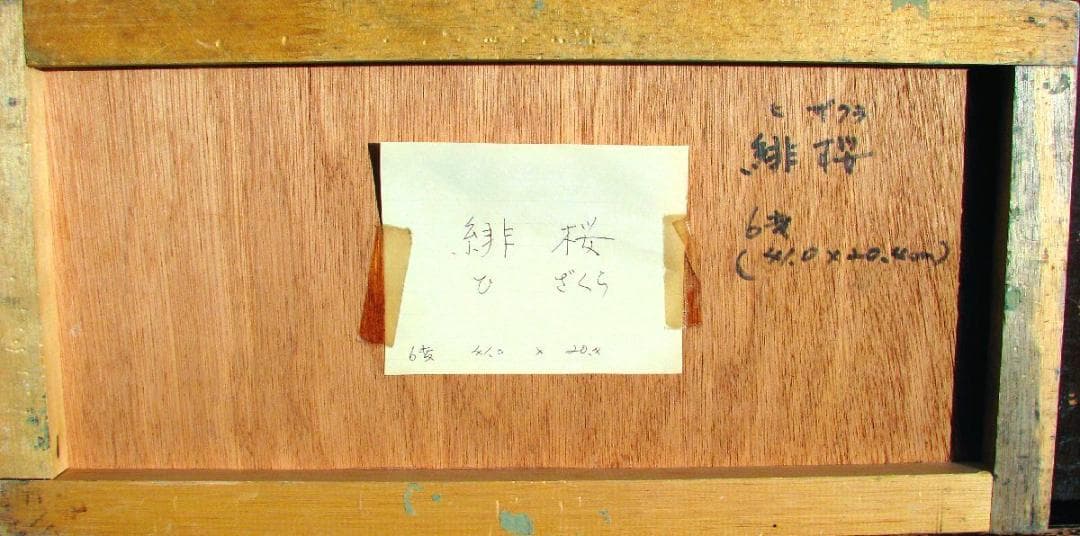 緋 桜
ひ ざくら
6変 41.0 x 20.4
ヒ ザクラ
緋 桜
6変
(41.0 x 20.4cm)